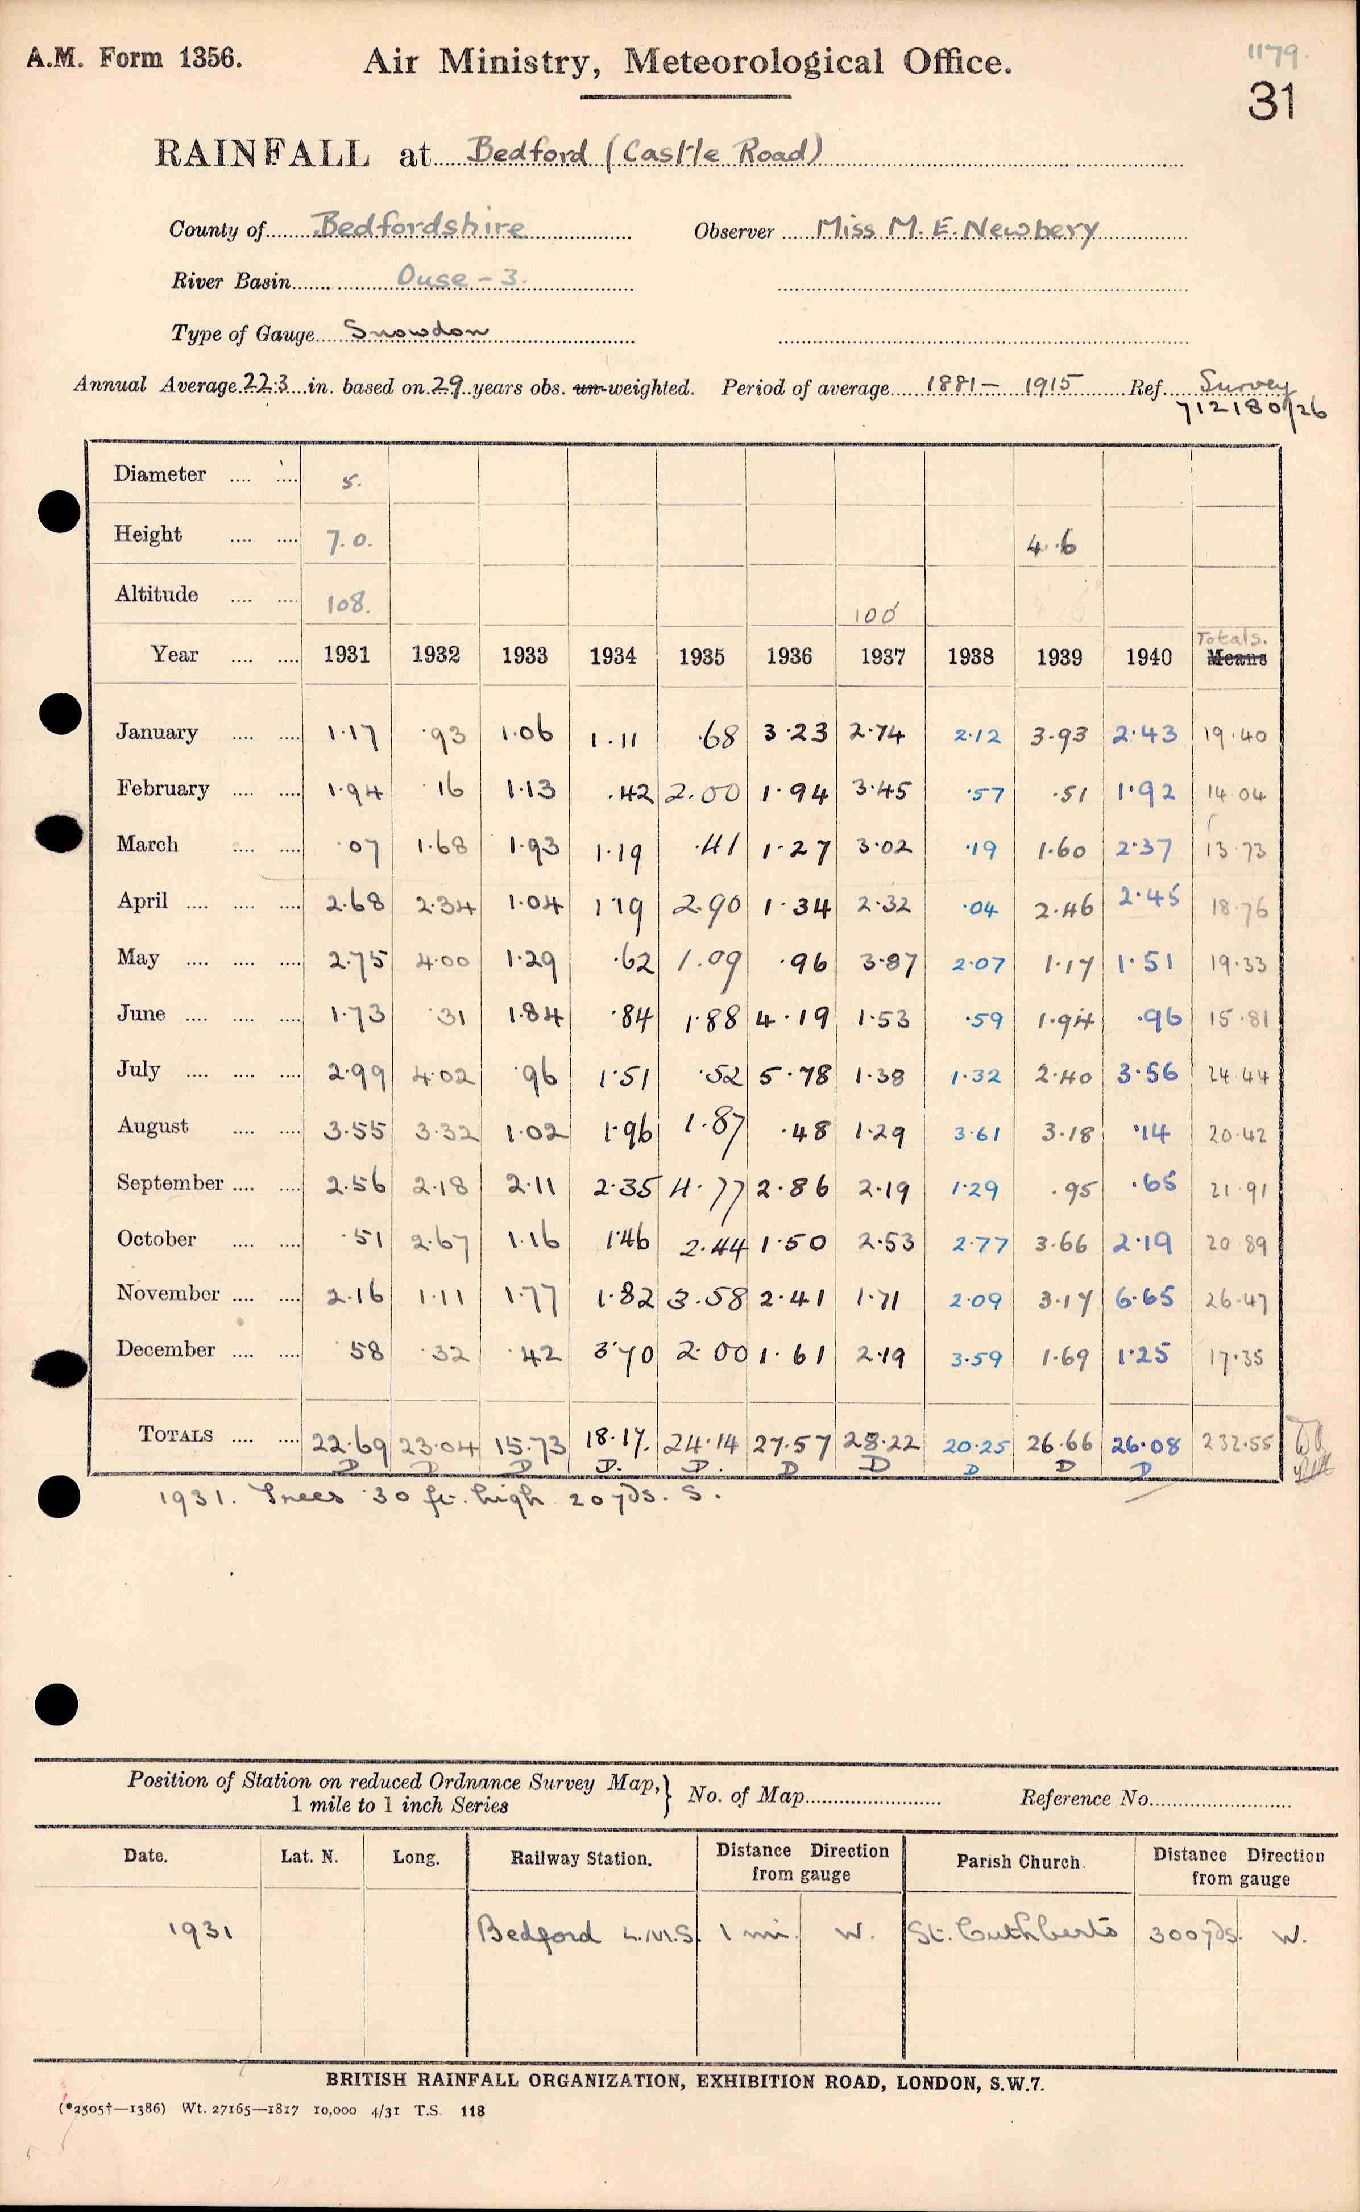 A.M. Form 1356.
Air Ministry, Meteorological Office.
1179.
31
RAINFALL at Bedford (Castle Road)
County of Bedfordshire Observer Miss M. E. Newbery
River Basin Ouse - 3.
Type of Gauge Snowdon
Annual Average 22.3 in. based on 29 years obs. un-weighted. Period of average 1881 - 1915 Ref. Survey
712180/26
Diameter 5.
Height 7.0. 4.6
Altitude 108. 100'
Totals.
Year 1931 1932 1933 1934 1935 1936 1937 1938 1939 1940 Means
January 1.17 .93 1.06 1.11 .68 3.23 2.74 2.12 3.93 2.43 19.40
February 1.94 .16 1.13 .42 2.00 1.94 3.45 .57 .51 1.92 14.04
March .07 1.68 1.93 1.19 .41 1.27 3.02 .19 1.60 2.37 13.73
April 2.68 2.34 1.04 1.19 2.90 1.34 2.32 .04 2.46 2.45 18.76
May 2.75 4.00 1.29 .62 1.09 .96 3.87 2.07 1.17 1.51 19.33
June 1.73 .31 1.84 .84 1.88 4.19 1.53 .59 1.94 .96 15.81
July 2.99 4.02 .96 1.51 .52 5.78 1.38 1.32 2.40 3.56 24.44
August 3.55 3.32 1.02 1.96 1.87 .48 1.29 3.61 3.18 .14 20.42
September 2.56 2.18 2.11 2.35 4.77 2.86 2.19 1.29 .95 .65 21.91
October .51 2.67 1.16 1.46 2.44 1.50 2.53 2.77 3.66 2.19 20.89
November 2.16 1.11 1.77 1.82 3.58 2.41 1.71 2.09 3.17 6.65 26.47
December .58 .32 .42 3.70 2.00 1.61 2.19 3.59 1.69 1.25 17.35
TOTALS 22.69 23.04 15.73 18.17. 24.14 27.57 28.22 20.25 26.66 26.08 232.55
D D D D. D. D D D D D
1931. Trees 30 ft. high 20 yds. S.
Position of Station on reduced Ordnance Survey Map, } No. of Map Reference No.
1 mile to 1 inch Series
Date. Lat. N. Long. Railway Station. Distance Direction from gauge Parish Church. Distance Direction from gauge
1931 Bedford L.M.S. 1 mi. W. St. Cuthberts 300 yds. W.
BRITISH RAINFALL ORGANIZATION, EXHIBITION ROAD, LONDON, S.W.7.
(*2505†—1386) Wt. 27165—1817 10,000 4/31 T.S. 118